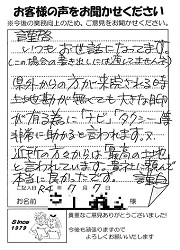 お客様の声をお聞かせください
※今後の業務向上のため、ご意見をお聞かせください
謹啓
いつもお世話になってます。
(この場合の書き出しには適してませんが)
県外からの方が来院される時
土地勘が無くても大きな駅
が有る為に「ナビ」「タクシー」
非常に助かると言われます。又
近所の方々からは「最高の土地」
と言われています。貴社に頼んで
本当に良かったです。 謹白
ご記入日 R4年 7月 7日
お名前
Since
1979
貴重なご意見ありがとうございました!
今後の励みになりますので
よろしくお願いいたします